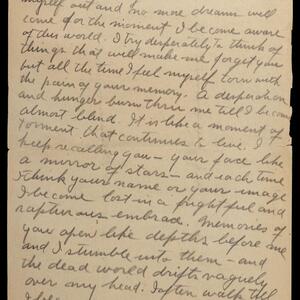 myself out and no more dreams will
come for the moment I become aware
of this world. I try desperately to think of
things that will make me forget you
but all the time I feel myself torn with
the pain of your memory. A desperation
and hunger burn thru me till I become
almost blind. It is like a moment of
torment that continues to live. I
keep recalling you — your face like
a mirror of stars — and each time
I think your name or your image
I become lost in a frightful and
rapturous embrace. Memories of
you open like depths before me
and I stumble into them — and
the dead world drifts vaguely
over my head. I often watch till